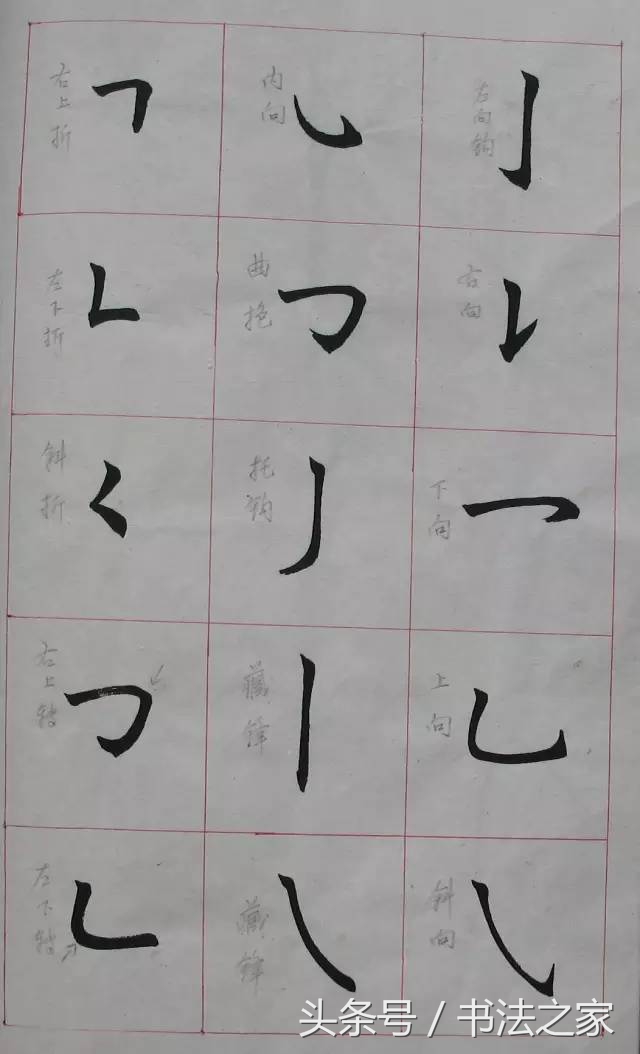 左向钩
右向
下向
上向
斜向
内向
曲抱
托钩
藏锋
藏锋
右上折
左下折
斜折
右上转
左下转
头条号 / 书法之家